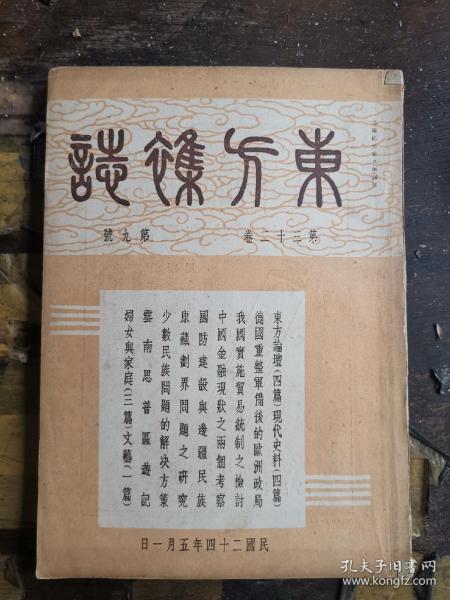 東方雜誌
第三十二卷 第九號
東方論壇(四篇)現代史料(四篇)
德國重整軍備後的歐洲政局
我國實施貿易統制之檢討
中國金融現狀之兩個考察
國防建設與邊疆民族
康藏劃界問題之研究
少數民族問題的解決方策
雲南思普區遊記
婦女與家庭(三篇)文藝(一篇)
民國二十四年五月一日
孔夫子旧书网
www.kongfz.com